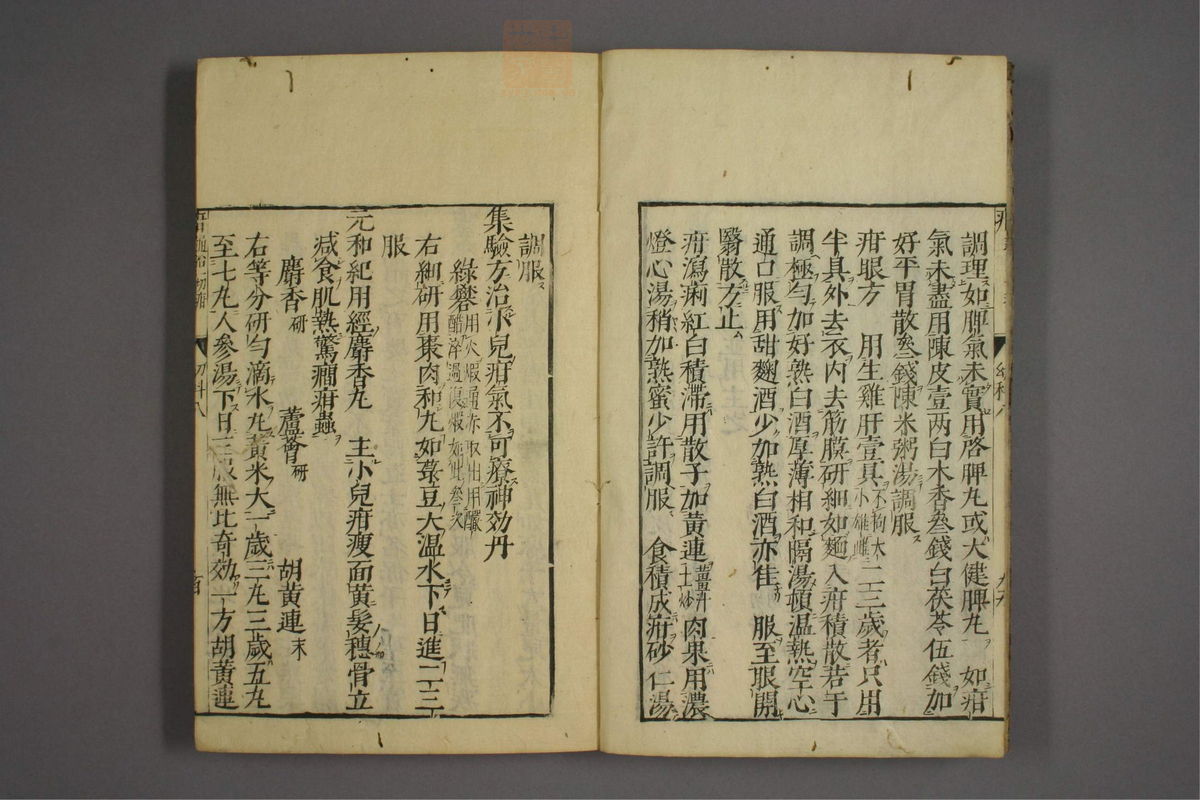 調理如脾氣未實用啓脾丸或大健脾丸　如疳
氣未盡用陳皮壹两白木香叁錢白茯苓伍錢加
好平胃散叁錢陳米粥湯調服
疳眼方　用生雞肝壹具不拘大小雄雌二三歲者只用
半具外去衣内去筋膜研細如麵入疳積散若干
調極勻加好熟白酒厚薄相和隔湯頓温熱空心
通口服用甜麹酒少加熟白酒亦佳　服至眼開
翳散方止
疳瀉痢紅白積滯用散子加黃連薑汁土炒肉果用濃
燈心湯稍加熟蜜少許調服　食積成疳砂仁湯
調服
集驗方治小兒疳氣不可療神効丹
緑礬用火煆通赤取出用釅醋淬過復煆如此叁次
右細研用棗肉和丸如菉豆大温水下日進二三
服
元和紀用經麝香丸　主小兒疳瘦面黃髮穗骨立
減食肌熱驚癇疳蟲
麝香研　蘆薈研　胡黃連末
右等分研勻滴水丸黃米大一歲三丸三歲五丸
至七丸人參湯下日三服無比奇効一方胡黃連